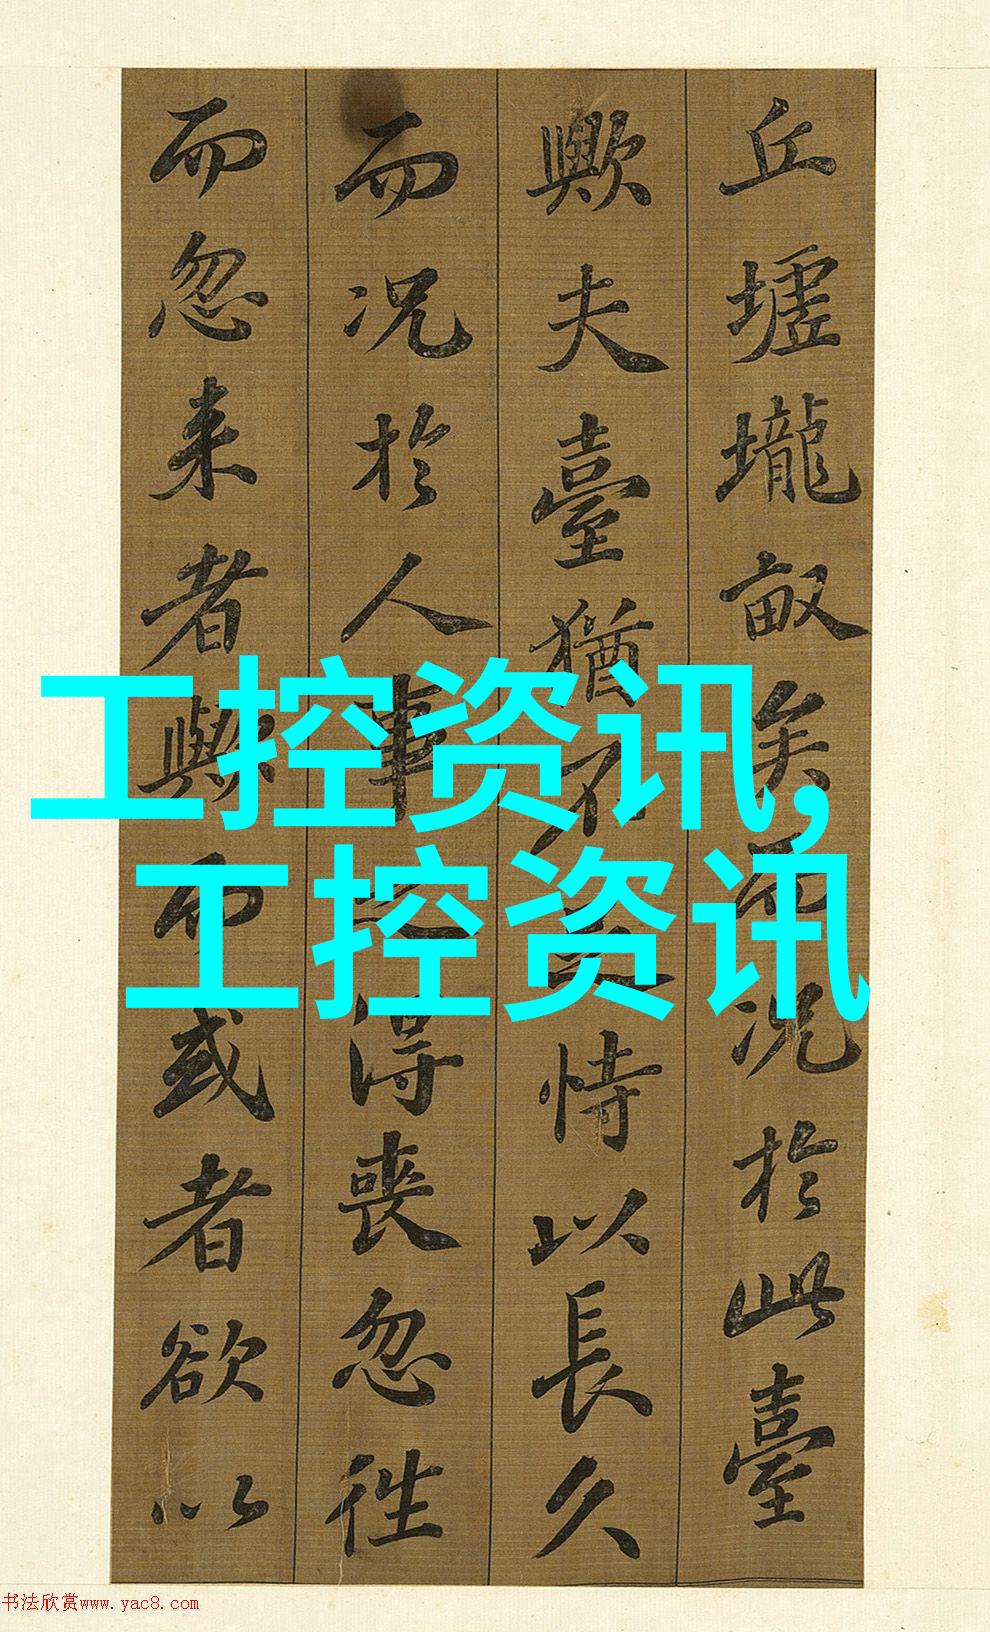 丘墟壠畝矣而况於此臺
歟夫臺猶不足恃以長久
而况於人事之得喪忽往
而忽来者歟而或者欲以
工控资讯,
工控资讯
书法欣赏www.yac8.com